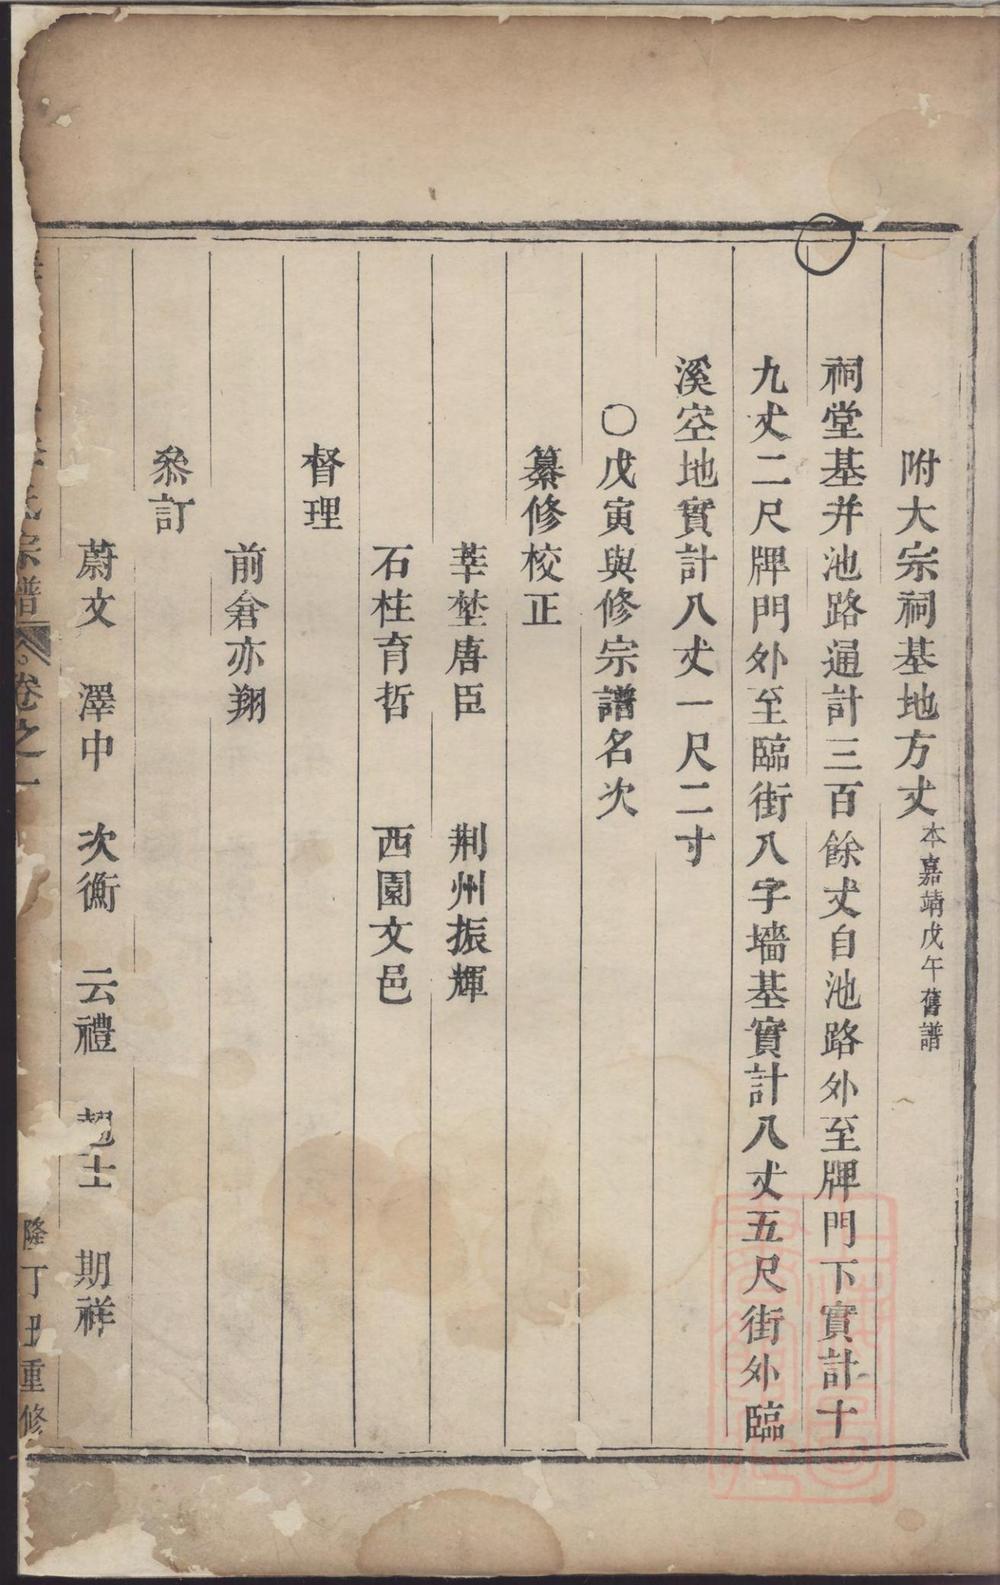 附大宗祠基地方丈本嘉靖戊午舊譜
祠堂基并池路通計三百餘丈自池路外至牌門下實計十
九丈二尺牌門外至臨街八字墻基實計八丈五尺街外臨
溪空地實計八丈一尺二寸
○戊寅與修宗譜名次
纂修校正
莘埜唐臣 荆州振輝
石柱育哲 西園文邑
督理
前倉亦翔
叅訂
蔚文 澤中 次衡 云禮 士 期祥
氏宗譜 卷之一 隆丁丑重修